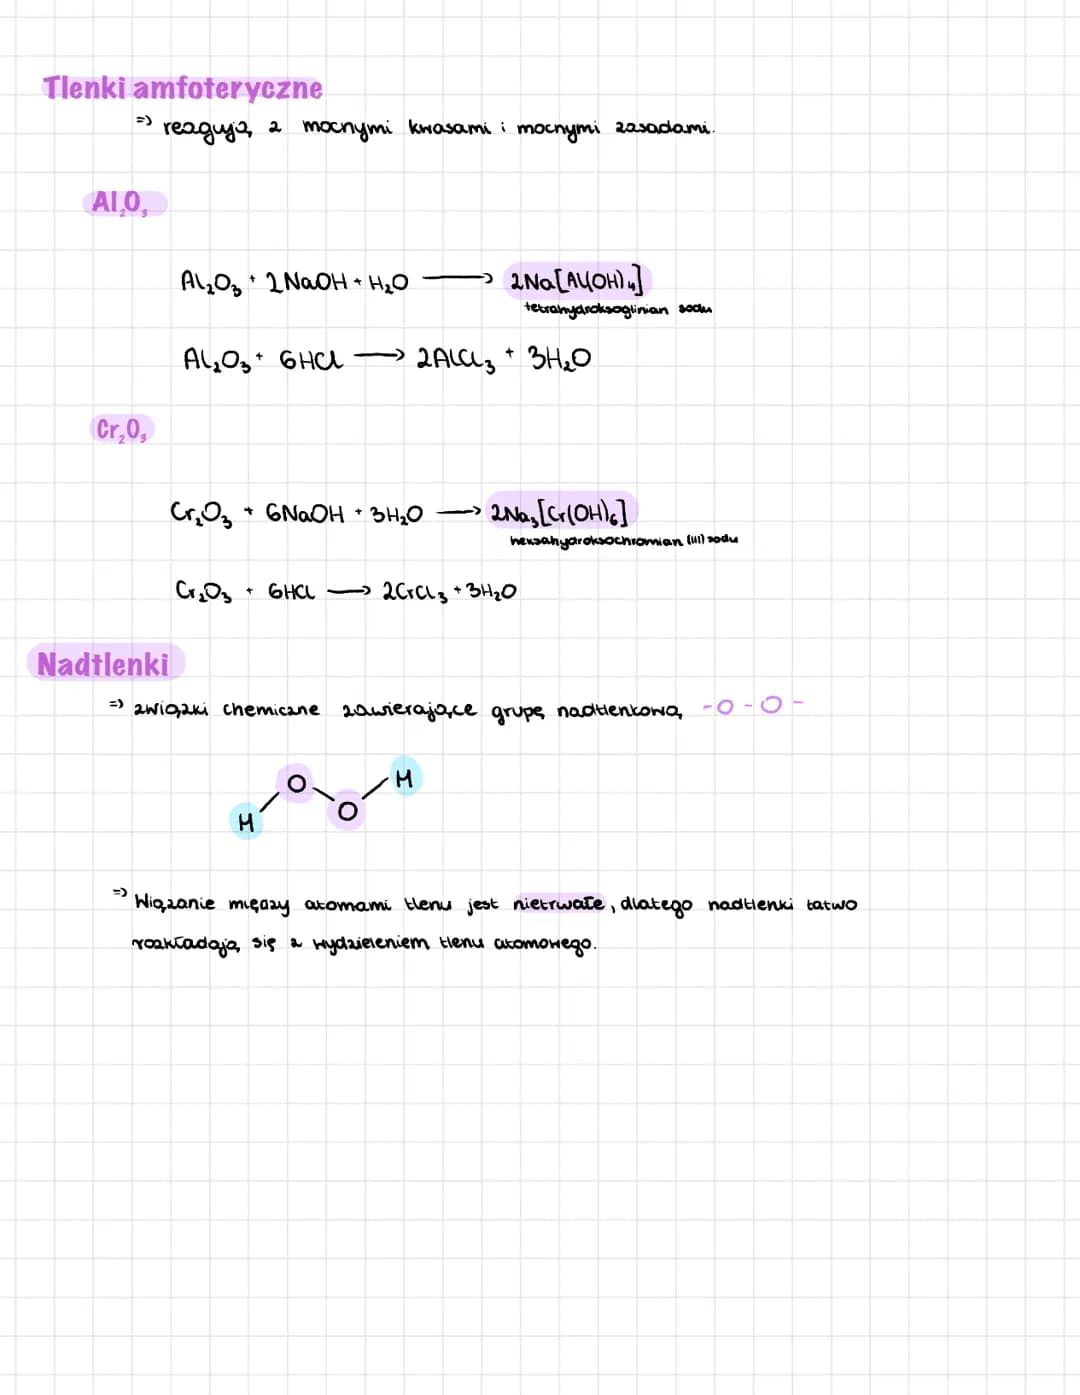 Tlenki amfoteryczne
=> reagują z mocnymi kwasami i mocnymi zasadami.
Al₂O₃
Al₂O₃ + 2NaOH + H₂O ⟶ 2Na[Al(OH)₄]
tetrahydroksoglinian sodu
Al₂O₃ + 6HCl ⟶ 2AlCl₃ + 3H₂O
Cr₂O₃
Cr₂O₃ + 6NaOH + 3H₂O ⟶ 2Na₃[Cr(OH)₆]
heksahydroksochromian (III) sodu
Cr₂O₃ + 6HCl ⟶ 2CrCl₃ + 3H₂O
Nadtlenki
=> związki chemiczne zawierające grupę nadtlenkową -O-O-
O H
H O
=> Wiązanie między atomami tlenu jest nietrwałe, dlatego nadtlenki łatwo
rozkładają się z wydzieleniem tlenu atomowego.